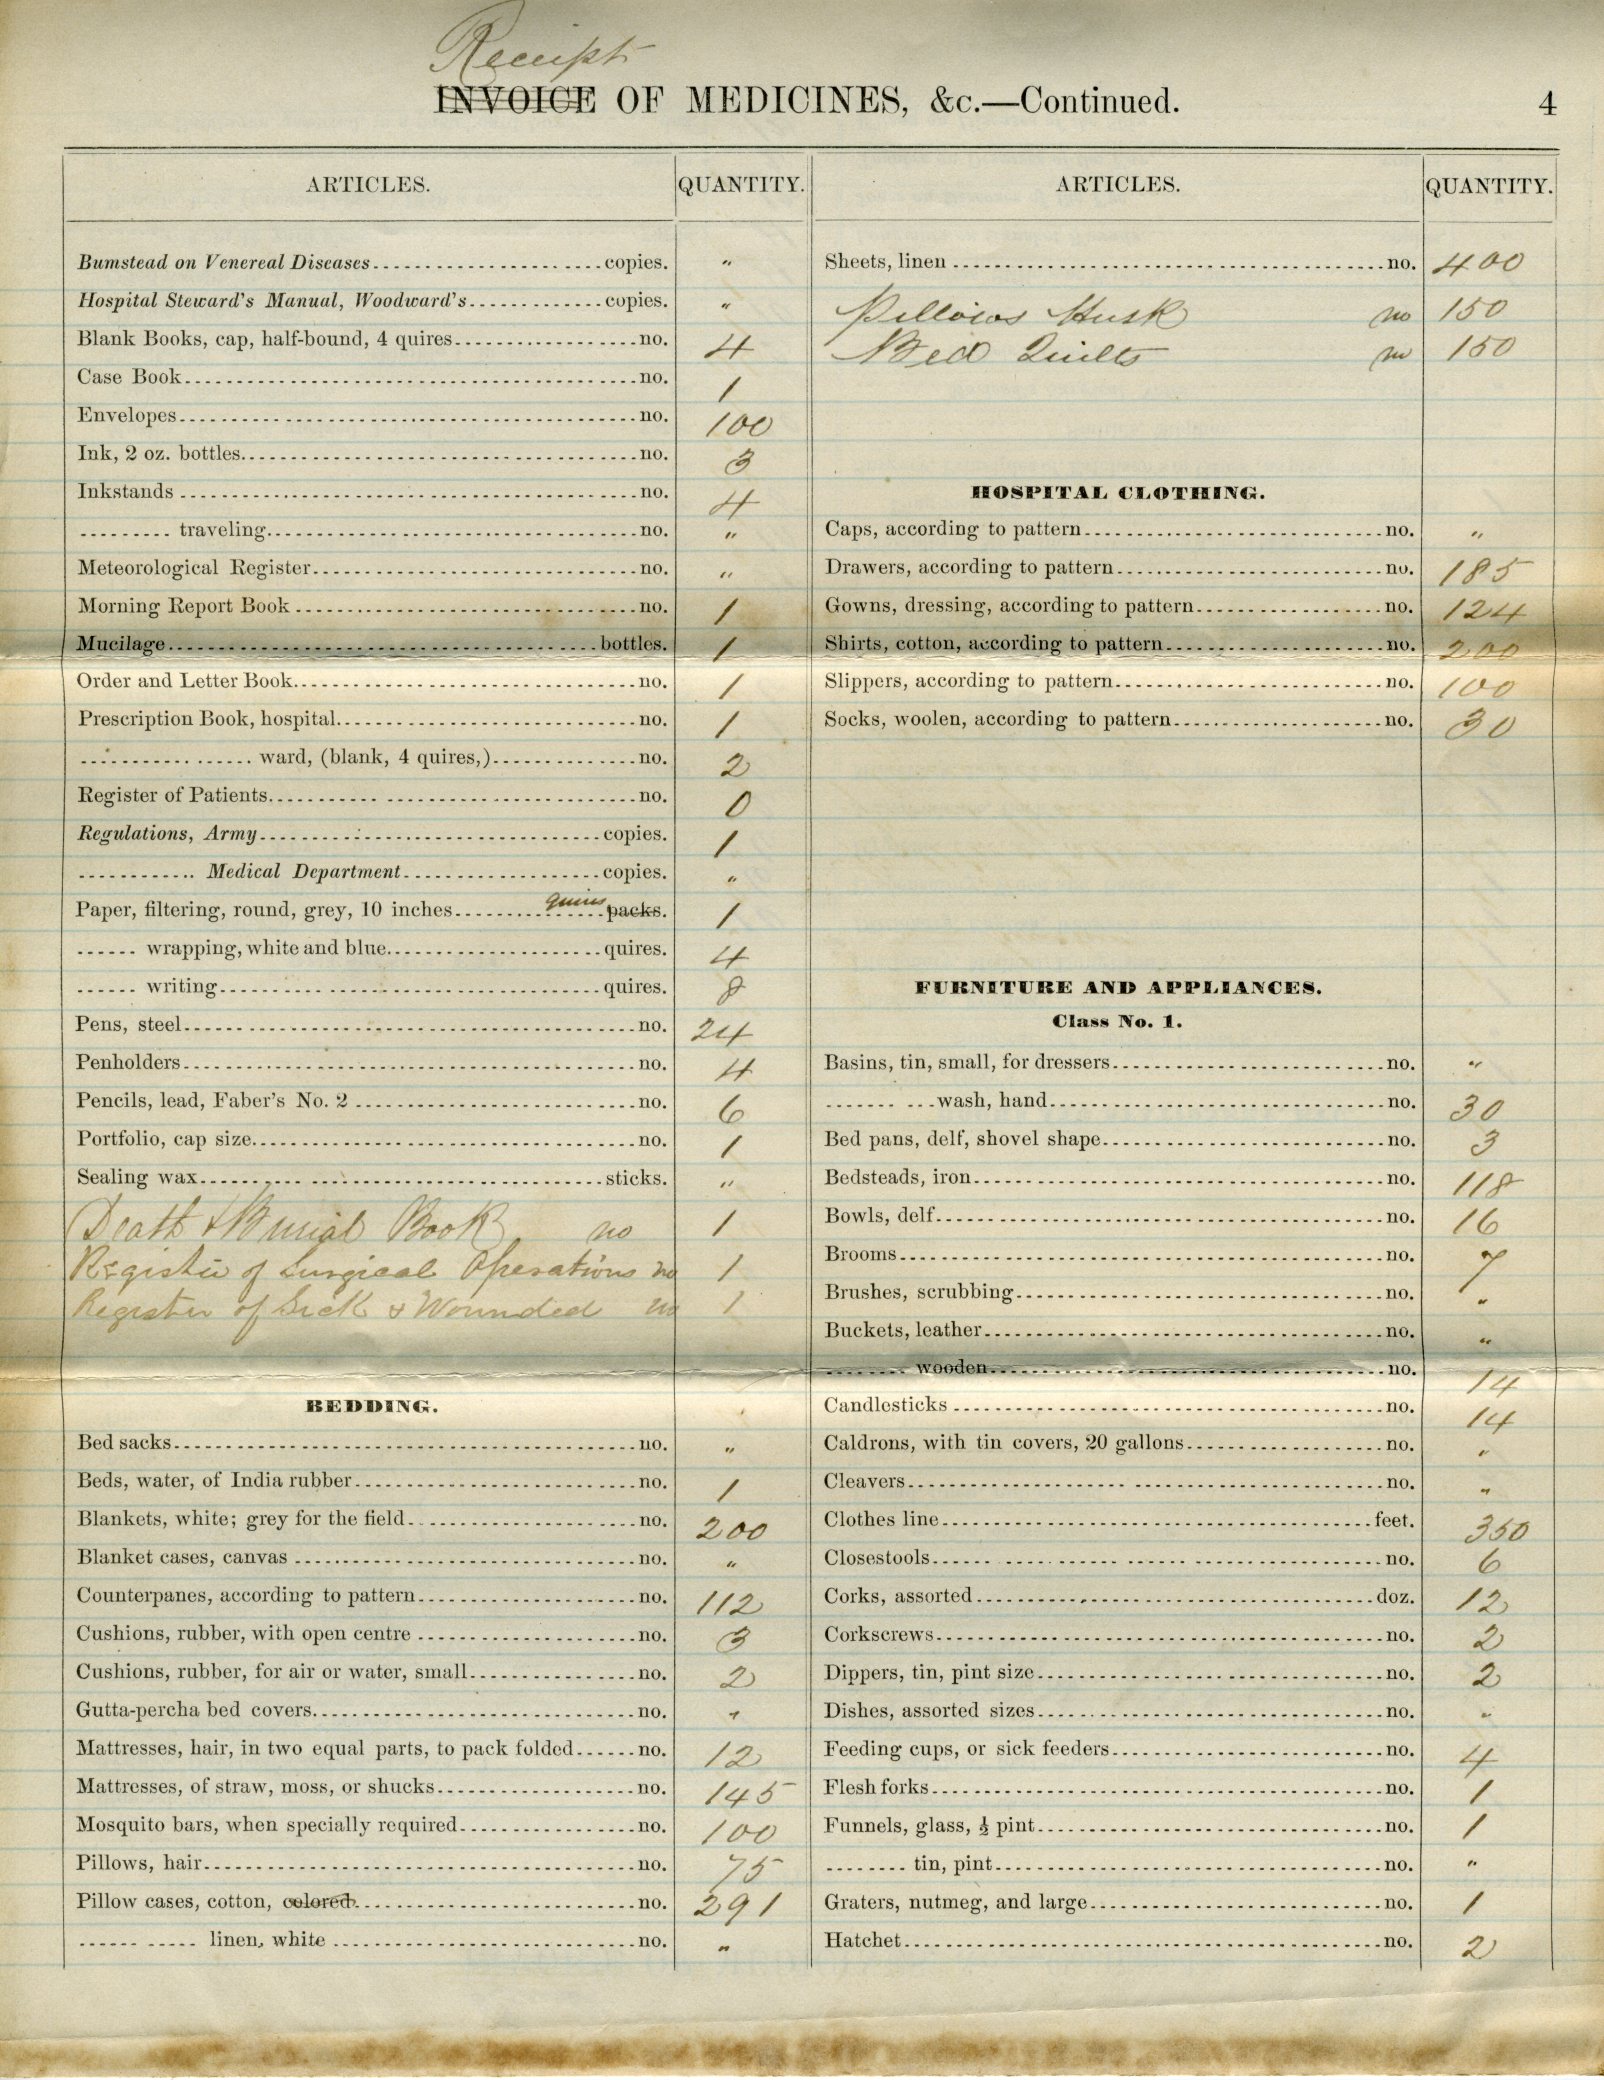 Receipt
INVOICE OF MEDICINES, &c.—Continued.
4
ARTICLES. QUANTITY.
Bumstead on Venereal Diseases copies. "
Hospital Steward's Manual, Woodward's copies. "
Blank Books, cap, half-bound, 4 quires no. 4
Case Book no. 1
Envelopes no. 100
Ink, 2 oz. bottles no. 3
Inkstands no. 4
traveling no. "
Meteorological Register no. "
Morning Report Book no. 1
Mucilage bottles. 1
Order and Letter Book no. 1
Prescription Book, hospital no. 1
ward, (blank, 4 quires,) no. 2
Register of Patients no. 0
Regulations, Army copies. 1
Medical Department copies. "
Paper, filtering, round, grey, 10 inches quires packs. 1
wrapping, white and blue quires. 4
writing quires. 8
Pens, steel no. 24
Penholders no. 4
Pencils, lead, Faber's No. 2 no. 6
Portfolio, cap size no. 1
Sealing wax sticks. "
Death & Burial Book no 1
Register of Surgical Operations no 1
Register of Sick & Wounded no 1
BEDDING.
Bed sacks no. "
Beds, water, of India rubber no. 1
Blankets, white; grey for the field no. 200
Blanket cases, canvas no. "
Counterpanes, according to pattern no. 112
Cushions, rubber, with open centre no. 3
Cushions, rubber, for air or water, small no. 2
Gutta-percha bed covers no. "
Mattresses, hair, in two equal parts, to pack folded no. 12
Mattresses, of straw, moss, or shucks no. 145
Mosquito bars, when specially required no. 100
Pillows, hair no. 75
Pillow cases, cotton, colored no. 291
linen, white no. "
ARTICLES. QUANTITY.
Sheets, linen no. 400
Pillows Husk no 150
Bed Quilts no 150
HOSPITAL CLOTHING.
Caps, according to pattern no. "
Drawers, according to pattern no. 185
Gowns, dressing, according to pattern no. 124
Shirts, cotton, according to pattern no. 200
Slippers, according to pattern no. 100
Socks, woolen, according to pattern no. 30
FURNITURE AND APPLIANCES.
Class No. 1.
Basins, tin, small, for dressers no. "
wash, hand no. 30
Bed pans, delf, shovel shape no. 3
Bedsteads, iron no. 118
Bowls, delf no. 16
Brooms no. 7
Brushes, scrubbing no. "
Buckets, leather no. "
wooden no. 14
Candlesticks no. 14
Caldrons, with tin covers, 20 gallons no. "
Cleavers no. "
Clothes line feet. 350
Closestools no. 6
Corks, assorted doz. 12
Corkscrews no. 2
Dippers, tin, pint size no. 2
Dishes, assorted sizes no. "
Feeding cups, or sick feeders no. 4
Flesh forks no. 1
Funnels, glass, ½ pint no. 1
tin, pint no. "
Graters, nutmeg, and large no. 1
Hatchet no. 2